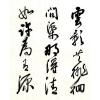 雲影共徘徊
問渠那得清
如許為有源